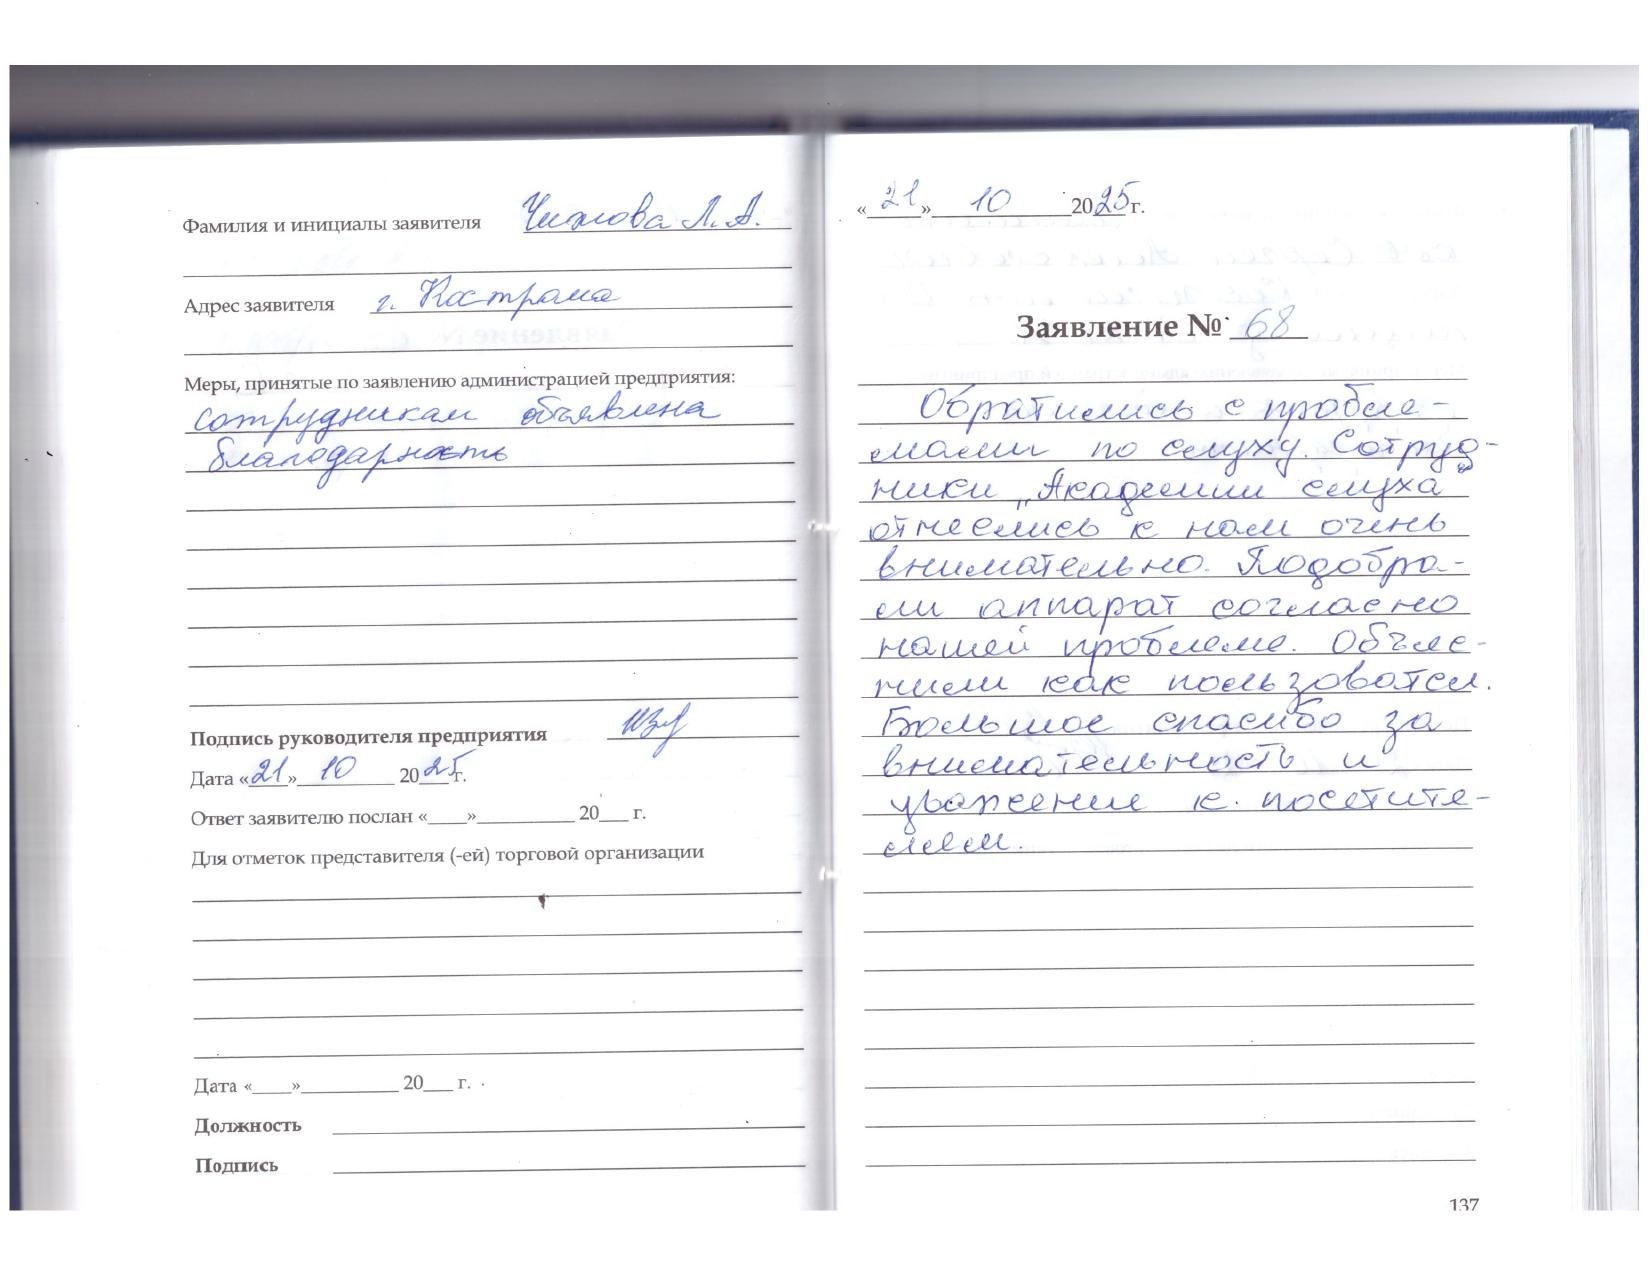 Фамилия и инициалы заявителя Чижова Л. А.
Адрес заявителя г. Кострома
Меры, принятые по заявлению администрацией предприятия:
сотрудникам объявлена
благодарность
Подпись руководителя предприятия
Дата «21» 10 2025г.
Ответ заявителю послан «____»__________ 20___ г.
Для отметок представителя (-ей) торговой организации
Дата «____»__________ 20___ г.
Должность
Подпись
«21» 10 2025 г.
Заявление № 68
Обратились с пробле-
мами по слуху. Сотруд-
ники „Академии слуха"
отнеслись к нам очень
внимательно. Подобра-
ли аппарат согласно
нашей проблеме. Объяс-
нили как пользоватся.
Большое спасибо за
внимательность и
уважение к посетите-
лям.
137